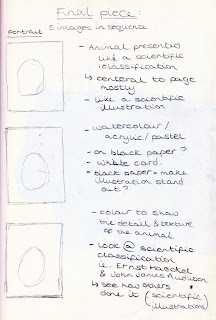 Final piece:
5 images in sequence
portrait
- Animal presented
like a scientific
classification
↳ central to page
mostly
↳ like a scientific
illustration
- watercolour/
acrylic/pastel
- on black paper?
- white card.
- black paper = make
illustration stand
out?
- colour to show
the detail & texture
of the animal
- look @ scientific
classification
ie. Ernst Haeckel
& John James Audubon
↳ see how others
done it (scientific
illustration)